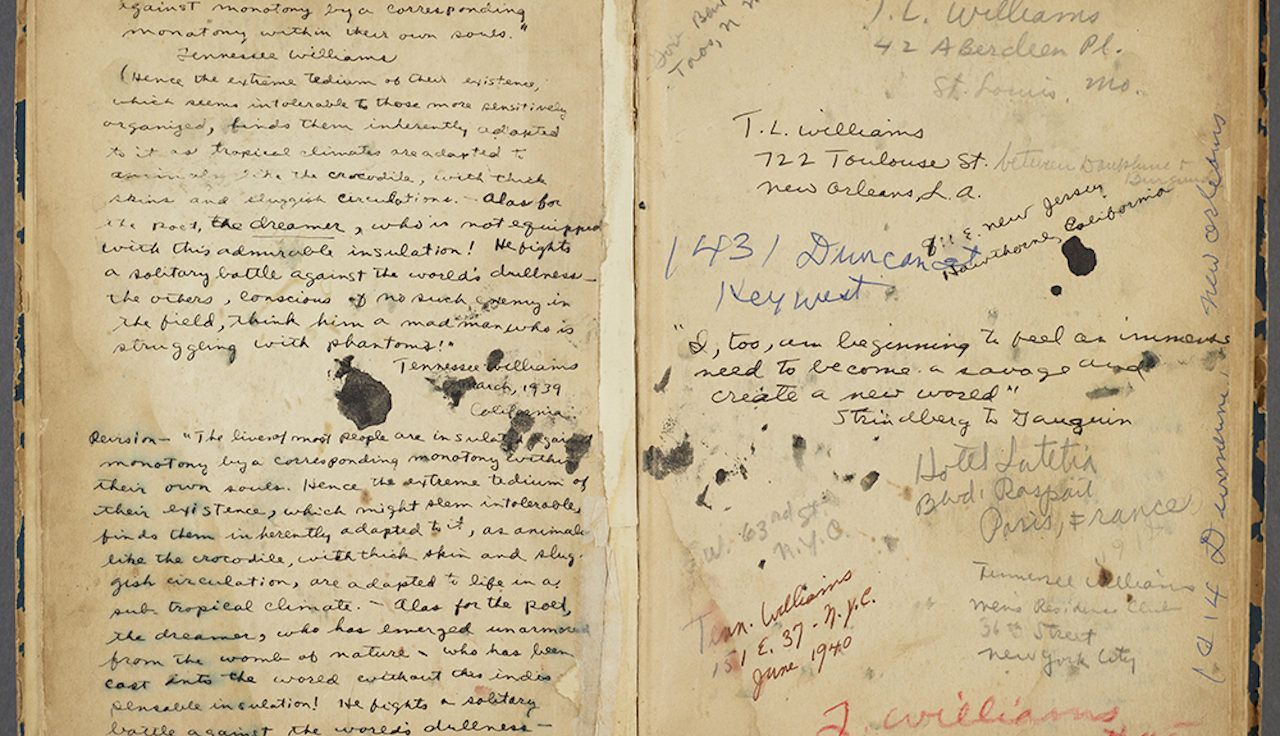 against monotony by a corresponding
monotony within their own souls."
Tennessee Williams
(Hence the extreme tedium of their existence,
which seems intolerable to those more sensitively
organized, finds them inherently adapted
to it as tropical climates are adapted to
animals like the crocodile, with thick
skins and sluggish circulations. — Alas for
the poet, the dreamer, who is not equipped
with this admirable insulation! He fights
a solitary battle against the world's dullness —
the others, conscious of no such enemy in
the field, think him a mad man who is
struggling with phantoms!"
Tennessee Williams
March, 1939
California
Revision — "The lives of most people are insulated against
monotony by a corresponding monotony within
their own souls. Hence the extreme tedium of
their existence, which might seem intolerable,
finds them inherently adapted to it, as animals
like the crocodile, with thick skin and slug-
gish circulation, are adapted to life in a
sub-tropical climate. — Alas for the poet,
the dreamer, who has emerged unarmored
from the womb of nature — who has been
cast into the world without this indis
pensable insulation! He fights a solitary
battle against the world's dullness —
Taos, N. M.
T. L. Williams
42 Aberdeen Pl.
St. Louis, Mo.
T. L. Williams
722 Toulouse St. between Dauphine &
New Orleans, L.A.
E. New Jersey
Hawthorne, California
1431 Duncan St
Key West
"I, too, am beginning to feel an immense
need to become a savage and
create a new world"
Strindberg to Gauguin
Hotel Lutetia
Blvd. Raspail
Paris, France
W. 63rd St.
N.Y.C.
Tennessee Williams
Men's Residence Club
36th Street
New York City
Tenn. Williams
151 E. 37 - N.Y.C.
June 1940
T. Williams
1014 Dumaine, New Orleans